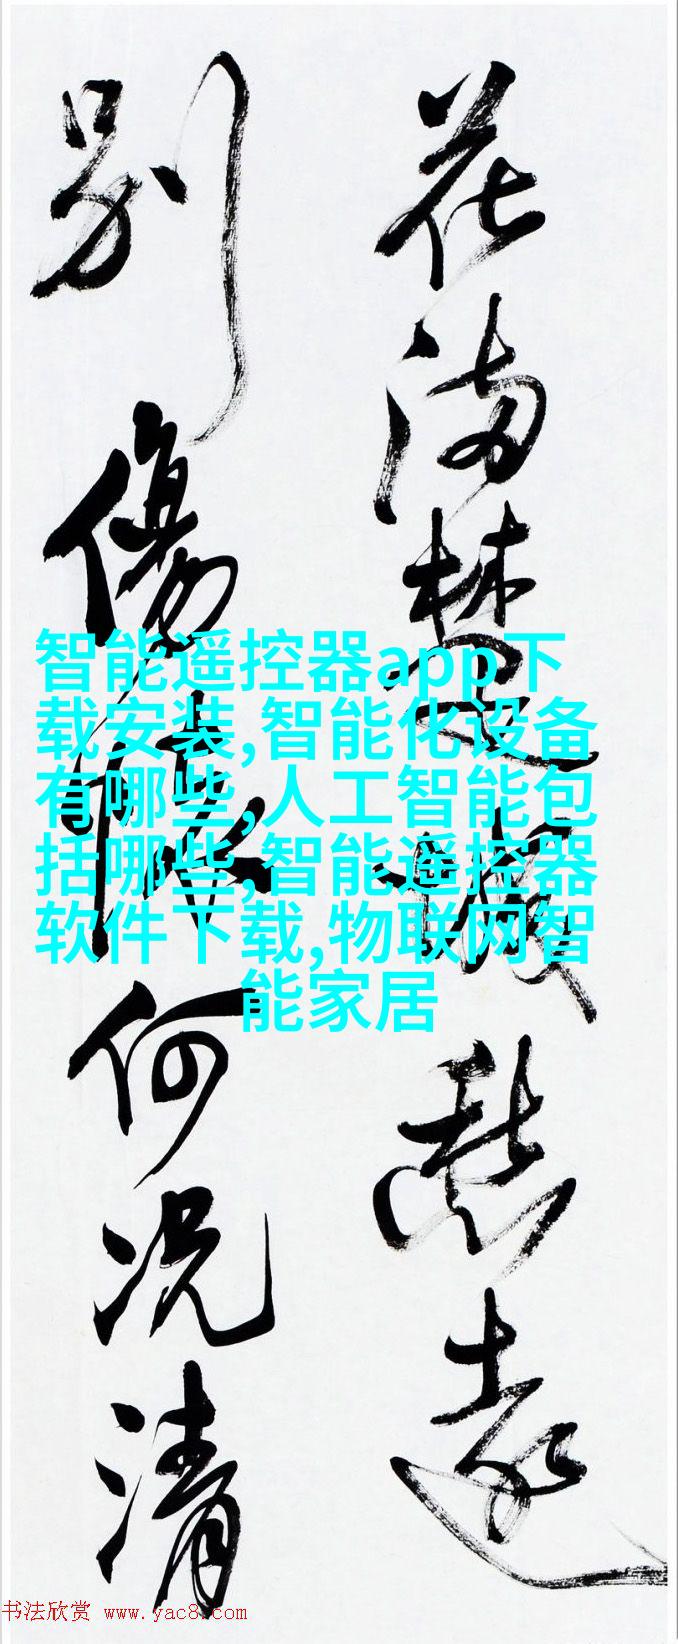 花满楚城愁遠
别傷懷何况清
智能遥控器app下
载安装,智能化设备
有哪些,人工智能包
括哪些,智能遥控器
软件下载,物联网智
能家居
书法欣赏 www.yac8.com